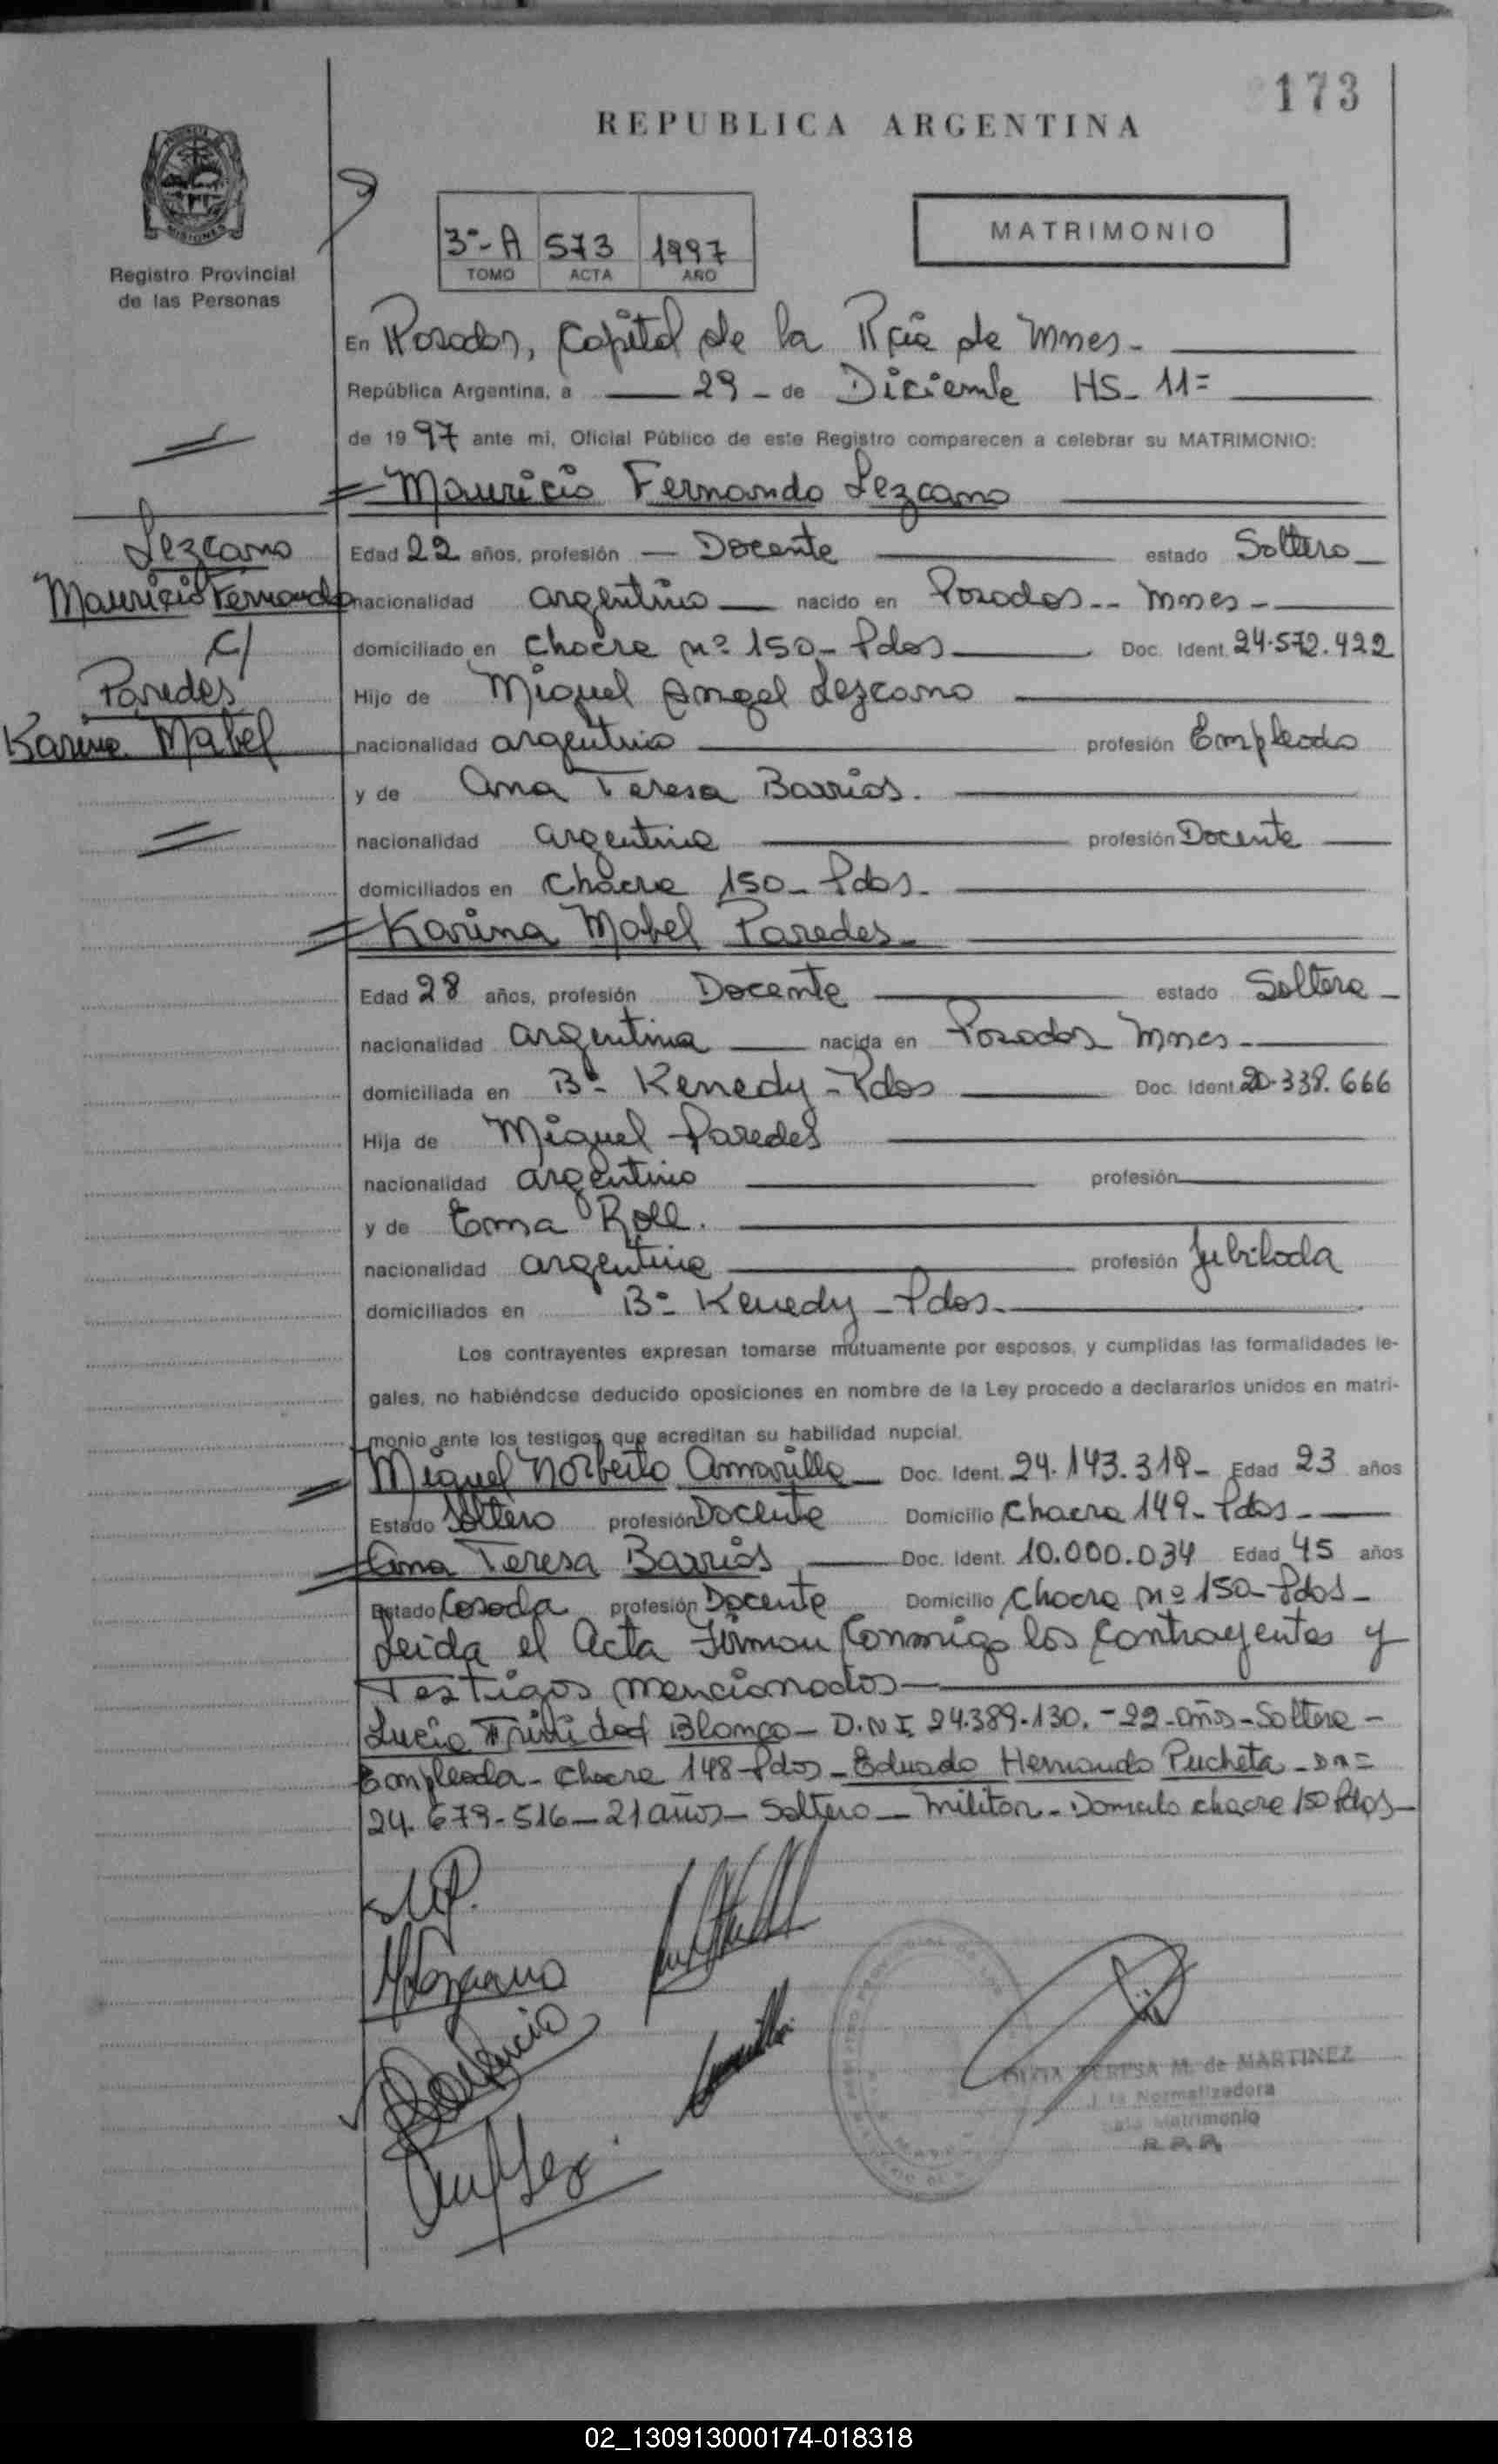 173
REPUBLICA ARGENTINA
MISIONES
Registro Provincial
de las Personas
3º-A 573 1997
TOMO ACTA AÑO
MATRIMONIO
En Posadas, Capital de la Pcia de Mnes-
República Argentina, a 29 - de Diciembre HS. 11=
de 1997 ante mi, Oficial Público de este Registro comparecen a celebrar su MATRIMONIO:
Mauricio Fernando Lezcano
Lezcano
Mauricio Fernando
c/
Paredes
Karina Mabel
Edad 22 años, profesión - Docente estado Soltero
nacionalidad argentino nacido en Posadas -- Mnes -
domiciliado en Chacra nº 150 - Pdas Doc. Ident. 24.572.422
Hijo de Miguel Angel Lezcano
nacionalidad argentino profesión Empleado
y de Ana Teresa Barrios.
nacionalidad argentina profesión Docente
domiciliados en Chacra 150 - Pdas -
Karina Mabel Paredes -
Edad 28 años, profesión Docente estado Soltera -
nacionalidad argentina nacida en Posadas Mnes -
domiciliada en Bº- Kenedy - Pdas Doc. Ident. 20.338.666
Hija de Miguel Paredes
nacionalidad argentino profesión
y de Ema Roll.
nacionalidad argentina profesión Jubilada
domiciliados en Bº- Kenedy - Pdas -
Los contrayentes expresan tomarse mutuamente por esposos, y cumplidas las formalidades le-
gales, no habiéndose deducido oposiciones en nombre de la Ley procedo a declararlos unidos en matri-
monio ante los testigos que acreditan su habilidad nupcial.
Miguel Norberto Amarilla Doc. Ident. 24.143.319 - Edad 23 años
Estado Soltero profesión Docente Domicilio Chacra 149 - Pdas -
Ana Teresa Barrios Doc. Ident. 10.000.034 Edad 45 años
Estado Casada profesión Docente Domicilio Chacra nº 150 - Pdas -
Leida el Acta Firman Conmigo los Contrayentes y
Testigos mencionados
Lucia Trinidad Blanco - D.N.I 24.389.130. - 22 - años - Soltera -
Empleada - Chacra 148 - Pdas - Eduardo Hernando Pucheta - DN=
24.679.516 - 21 años - Soltero - Militar - Domicilio chacra 150 Pdas -
TERESA M. de MARTINEZ
Normalizadora
Matrimonio
R.P.P.
02_130913000174-018318